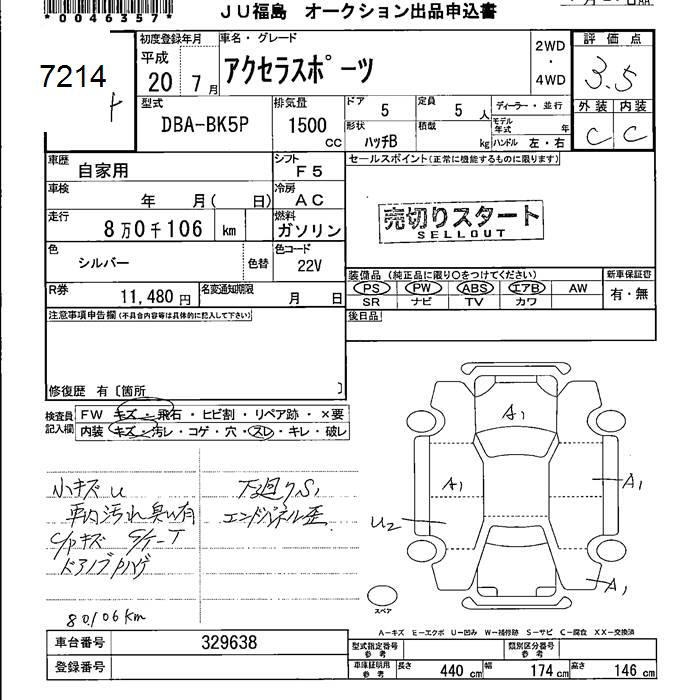 *0046357*
JU福島 オークション出品申込書
7214
初度登録年月
平成
20 7月
車名・グレード
アクセラスポーツ
2WD
・
4WD
評価点
3.5
外装 内装
C C
型式
DBA-BK5P
排気量
1500 cc
ドア 5
定員 5 人
ディーラー・並行
形状 ハッチB
積載 kg
モデル年式 年
ハンドル 左・右
車歴 自家用
シフト F5
セールスポイント(正常に機能するものに限ります)
車検 年 月( 日)
冷房 AC
走行 8万0千106 km
燃料 ガソリン
売切りスタート
SELLOUT
色 シルバー 色替
色コード 22V
装備品 (純正品に限り○をつけてください)
新車保証書
有・無
PS PW ABS エアB AW
SR ナビ TV カワ
R券 11,480円
名変通知期限 月 日
後日品
注意事項申告欄(不具合内容等は具体的に記入して下さい)
修復歴 有〔箇所 〕
検査員記入欄
FW キズ・飛石・ヒビ割・リペア跡・×要
内装 キズ・汚れ・コゲ・穴・スレ・キレ・破レ
小キズ U
車内汚れ臭い有
C/Pキズ
ドアノブハゲ
80106km
下廻りS1
エンドパネル歪
A1
A1
A1
U2
A1
スペア
A-キズ E-エクボ U-凹み W-補修跡 S-サビ C-腐食 XX-交換済
車台番号 329638
登録番号
型式指定番号 参考
類別区分番号 参考
車庫証明用 参考
長さ 440 cm
幅 174 cm
高さ 146 cm